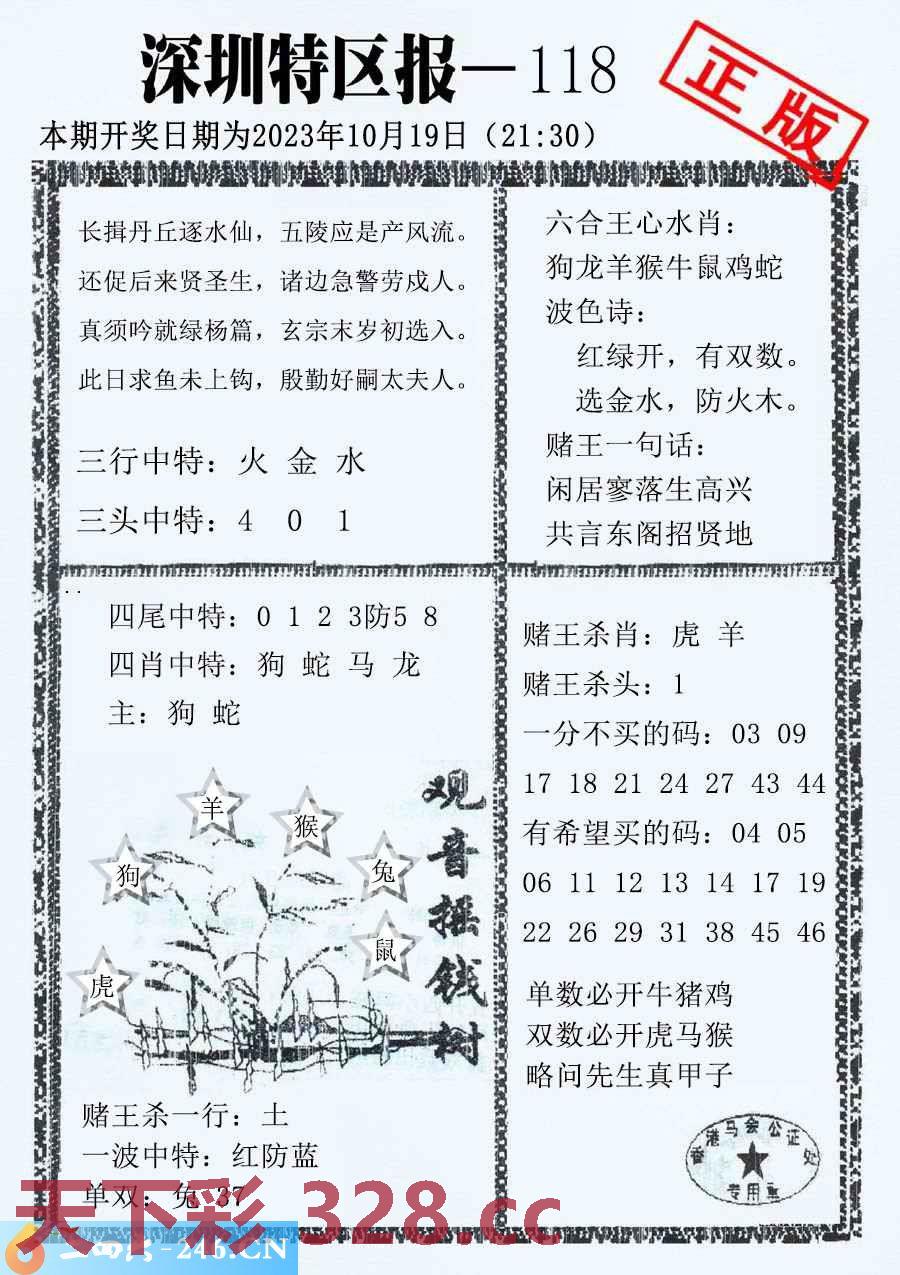 深圳特区报—118
正版
本期开奖日期为2023年10月19日（21:30）
长揖丹丘逐水仙，五陵应是产风流。
还促后来贤圣生，诸边急警劳戍人。
真须吟就绿杨篇，玄宗末岁初选入。
此日求鱼未上钩，殷勤好嗣太夫人。
三行中特：火 金 水
三头中特：4 0 1
六合王心水肖：
狗龙羊猴牛鼠鸡蛇
波色诗：
红绿开，有双数。
选金水，防火木。
赌王一句话：
闲居寥落生高兴
共言东阁招贤地
四尾中特：0 1 2 3防5 8
四肖中特：狗 蛇 马 龙
主：狗 蛇
羊
猴
狗
兔
鼠
虎
观音摇钱树
赌王杀一行：土
一波中特：红防蓝
单双：兔 37
赌王杀肖：虎 羊
赌王杀头：1
一分不买的码：03 09
17 18 21 24 27 43 44
有希望买的码：04 05
06 11 12 13 14 17 19
22 26 29 31 38 45 46
单数必开牛猪鸡
双数必开虎马猴
略问先生真甲子
香港马会公证处
专用章
天下彩 328.cc
-246.CN